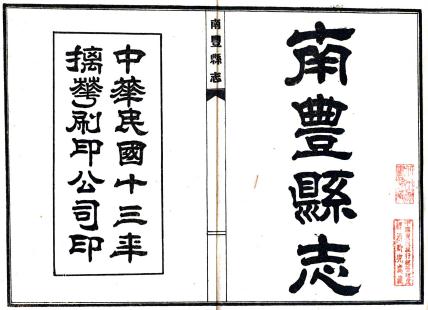 南豐縣志
南豐縣志
中華民國十三年
摛華刷印公司印